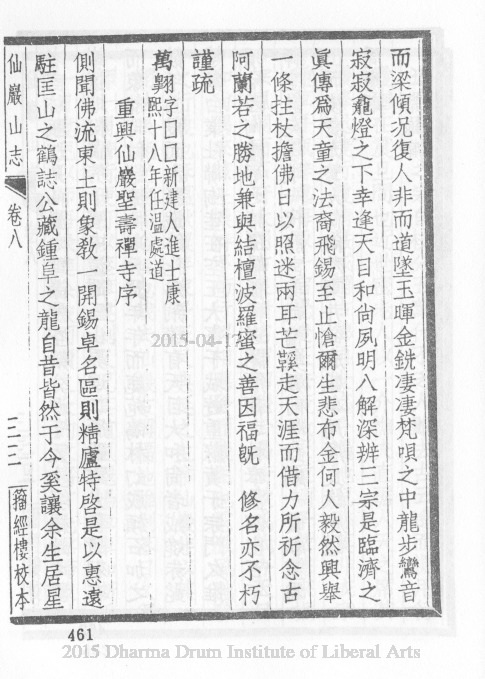 而梁傾況復人非而道墜玉暉金銑淒淒梵唄之中龍步鸞音
寂寂龕燈之下幸逢天目和尙夙明八解深辨三宗是臨濟之
眞傳爲天童之法裔飛錫至止愴爾生悲布金何人毅然興舉
一條拄杖擔佛日以照迷兩耳芒鞵走天涯而借力所祈念古
阿蘭若之勝地兼與結檀波羅蜜之善因福旣 修名亦不朽
謹疏
萬翺字口口新建人進士康
熙十八年任溫處道
重興仙巖聖壽禪寺序
側聞佛流東土則象敎一開錫卓名區則精廬特啓是以惠遠
駐匡山之鶴誌公藏鍾阜之龍自昔皆然于今奚讓余生居星
仙巖山志
卷八
三二
籀經樓校本
461
2015-04-17
2015 Dharma Drum Institute of Liberal Arts